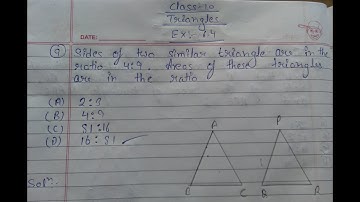 Class:-10
Triangles
Ex:- 6.4
DATE:
Q Sides of two similar triangle are in the
ratio 4:9. Areas of these triangles
are in the ratio
(A) 2:3
(B) 4:9
(C) 81:16
(D) 16:81 ✓
Solⁿ:
A
P
B C Q R